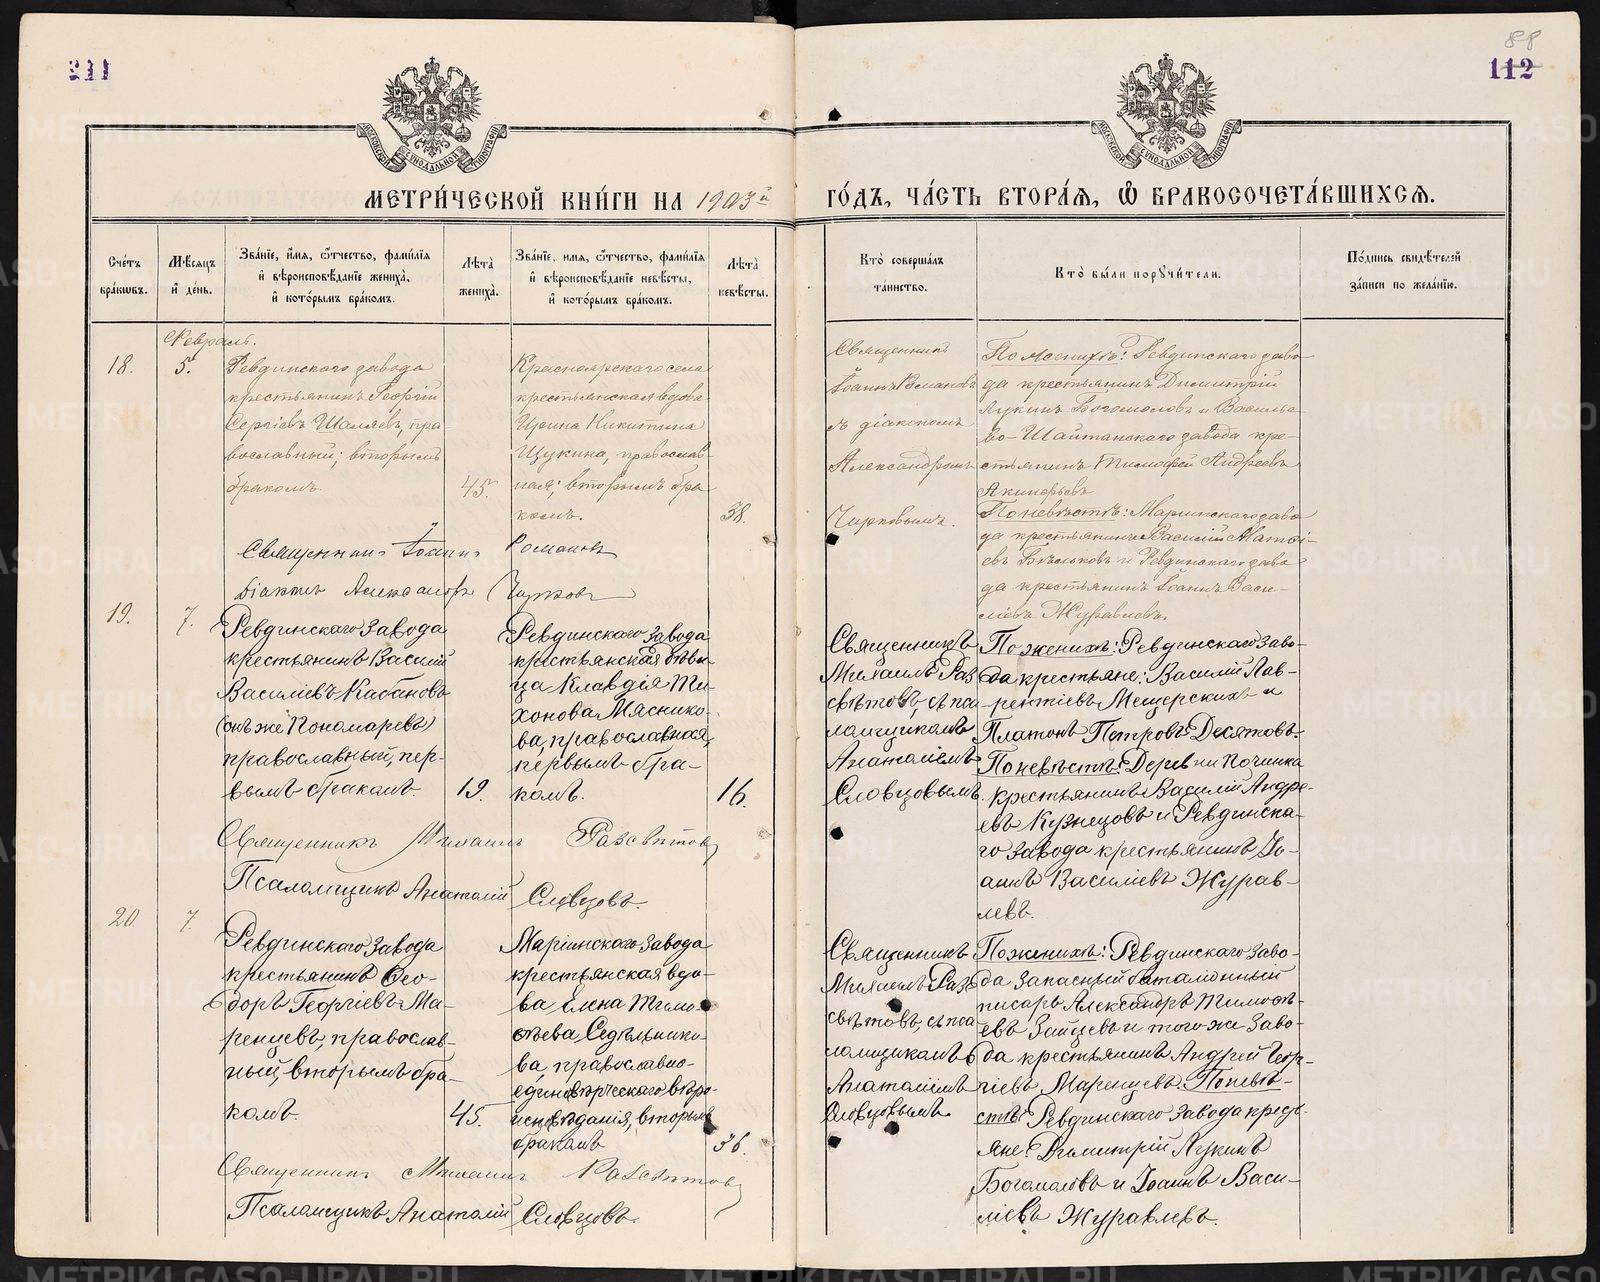 88
111
112
МОСКОВСКОЙ СѴНОДАЛЬНОЙ ТИПОГРАФІИ
МОСКОВСКОЙ СѴНОДАЛЬНОЙ ТИПОГРАФІИ
МЕТРИ́ЧЕСКОЙ КНИ́ГИ НА 1903й ГО́ДЪ, ЧА́СТЬ ВТОРА́Я, Ѡ БРАКОСОЧЕТА́ВШИХСѦ.
Сче́тъ бра́кѡвъ.
Мѣ́сяцъ и҆ де́нь.
Зва́нїе, и҆́мя, ѻ҆́тчество, фами́лїя
и҆ вѣроисповѣ́данїе жениха̀,
и҆ кото́рымъ бра́комъ.
Лѣта̀ жениха̀.
Зва́нїе, имя, ѻ҆́тчество, фами́лїя
и҆ вѣроисповѣ́данїе невѣ́сты,
и҆ кото́рымъ бра́комъ.
Лѣта̀ невѣ́сты.
Кто̀ соверша́лъ
та́инство.
Кто̀ бы́ли поручи́тели.
По́дпись свидѣ́телей
за́писи по жела́нїю.
Февраль.
18.
5.
Ревдинскаго завода
крестьянинъ Георгій
Сергіевъ Шаляевъ, пра-
вославный; вторымъ
бракомъ.
45.
Красноярскаго села
крестьянская вдова
Ирина Никитина
Щукина, православ-
ная; вторымъ бра-
комъ.
38.
Священникъ
Іоаннъ Романовъ
съ діакономъ
Александромъ
Чирковымъ.
По женихѣ: Ревдинскаго заво-
да крестьянинъ Димитрій
Лукинъ Богомоловъ и Василье-
во-Шайтанскаго завода кре-
стьянинъ Тимофей Андреевъ
Акинфьевъ
По невѣстѣ: Маріинскаго заво-
да крестьянинъ Василій Матѳі-
евъ Бѣльковъ и Ревдинскаго заво-
да крестьянинъ Іоаннъ Васи-
ліевъ Журавлевъ.
Священникъ Іоаннъ Романовъ
Діаконъ Александръ Чирковъ
19.
7.
Ревдинскаго завода
крестьянинъ Василій
Василіевъ Кабановъ
(онъ же Пономаревъ)
православный, пер-
вымъ бракомъ.
19.
Ревдинскаго завода
крестьянская дѣви-
ца Клавдія Ти-
хонова Мяснико-
ва, православная,
первымъ бра-
комъ.
16.
Священникъ
Михаилъ Раз-
свѣтовъ, съ пса-
ломщикомъ
Анатоліемъ
Словцовымъ.
По женихѣ: Ревдинскаго заво-
да крестьяне: Василій Лав-
рентіевъ Мещерскихъ и
Платонъ Петровъ Десятовъ.
По невѣстѣ: Деревни Починка
крестьянинъ Василій Андре-
евъ Кузнецовъ и Ревдинска-
го завода крестьянинъ Іо-
аннъ Василіевъ Журав-
левъ.
Священникъ Михаилъ Разсвѣтовъ
Псаломщикъ Анатолій Словцовъ.
20
7.
Ревдинскаго завода
крестьянинъ Ѳео-
доръ Георгіевъ Ма-
ренцевъ, православ-
ный, вторымъ бра-
комъ.
45.
Маріинскаго завода
крестьянская вдо-
ва Елена Тимо-
ѳеева Сѣдельнико-
ва, православно-
единовѣрческаго вѣро-
исповѣданія, вторымъ
бракомъ
36.
Священникъ
Михаилъ Раз-
свѣтовъ, съ пса-
ломщикомъ
Анатоліемъ
Словцовымъ.
По женихѣ: Ревдинскаго заво-
да запасный баталіонный
писарь Александръ Тимоѳе-
евъ Зайцевъ и того же заво-
да крестьянинъ Андрей Геор-
гіевъ Маренцевъ. По невѣ-
стѣ: Ревдинскаго завода кресть-
яне: Димитрій Лукинъ
Богомоловъ и Іоаннъ Васи-
ліевъ Журавлевъ.
Священникъ Михаилъ Разсвѣтовъ
Псаломщикъ Анатолій Словцовъ.
METRIKI.GASO-URAL.RU